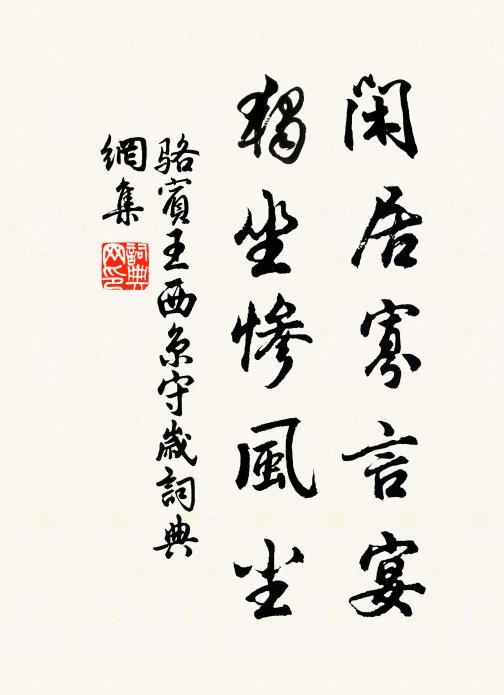 閑居寡言宴
獨坐慘風尘
骆賓王西京守歲詞典
網集
詞典网印